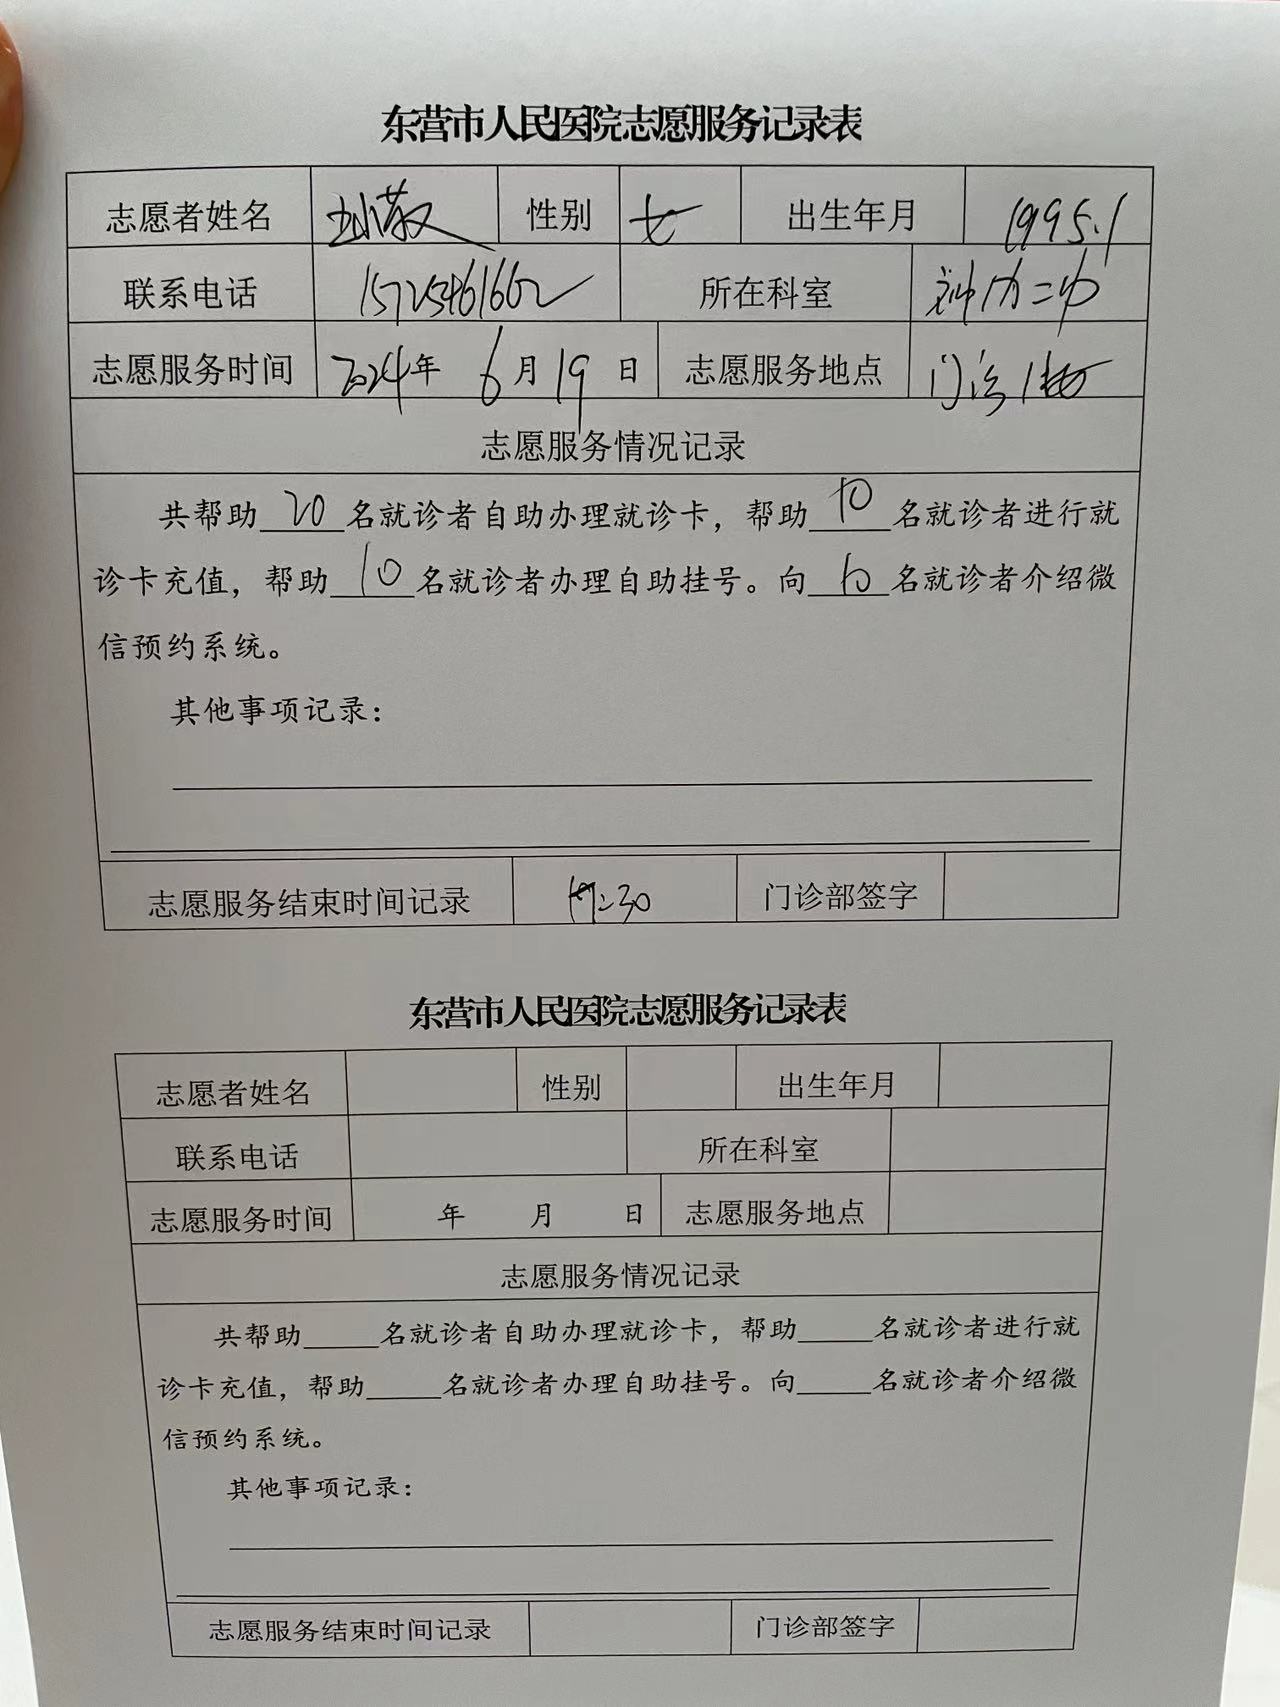 东营市人民医院志愿服务记录表
志愿者姓名 性别 女 出生年月 1995.1
联系电话 15725461662 所在科室 神内二
志愿服务时间 2024年 6月19日 志愿服务地点 门诊1楼
志愿服务情况记录
共帮助 20 名就诊者自助办理就诊卡，帮助 10 名就诊者进行就
诊卡充值，帮助 10 名就诊者办理自助挂号。向 10 名就诊者介绍微
信预约系统。
其他事项记录：
志愿服务结束时间记录 17:30 门诊部签字
东营市人民医院志愿服务记录表
志愿者姓名 性别 出生年月
联系电话 所在科室
志愿服务时间 年 月 日 志愿服务地点
志愿服务情况记录
共帮助_____名就诊者自助办理就诊卡，帮助_____名就诊者进行就
诊卡充值，帮助_____名就诊者办理自助挂号。向_____名就诊者介绍微
信预约系统。
其他事项记录：
志愿服务结束时间记录 门诊部签字